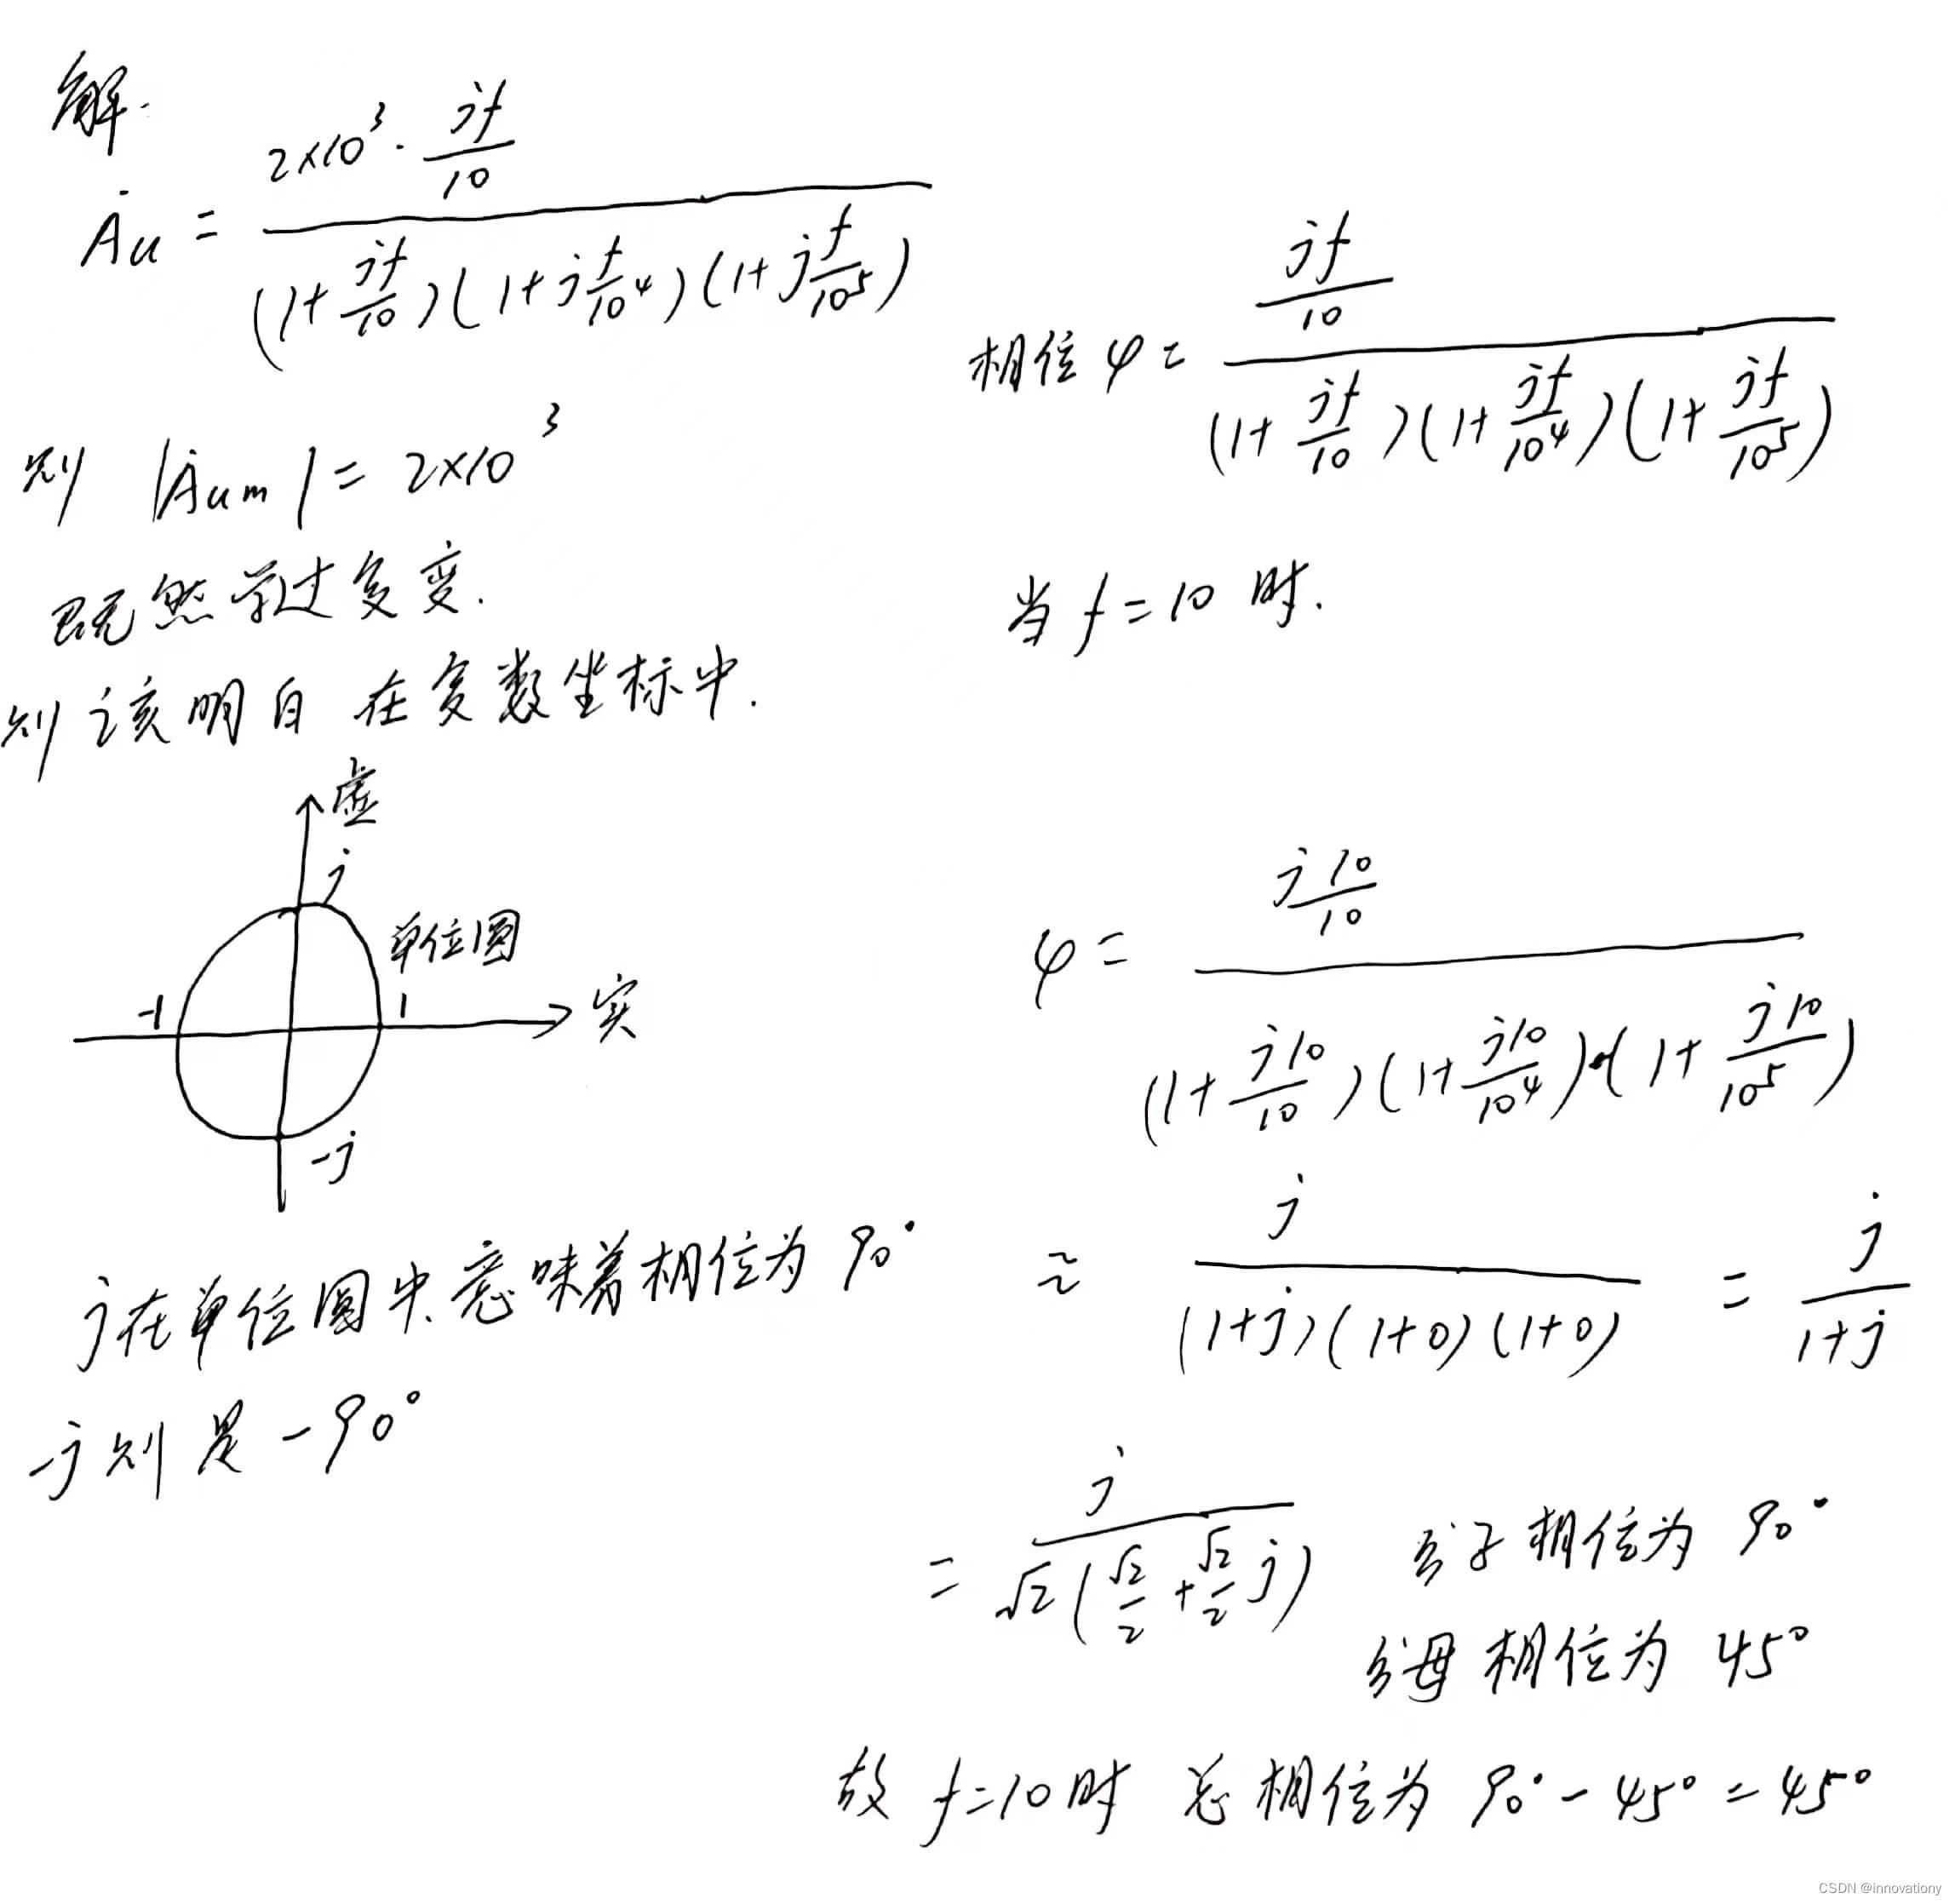 解.
Ȧu = (2×10³ · jf/10) / ((1+jf/10)(1+j f/10⁴)(1+j f/10⁵))
则 |Ȧum| = 2×10³
既然学过复变.
则该明白 在复数坐标中.
虚
j
单位圆
-1
1
实
-j
j在单位圆中.意味着相位为 90°
-j则是 -90°
相位 φ = (jf/10) / ((1+jf/10)(1+jf/10⁴)(1+jf/10⁵))
当 f=10 时.
φ = (j10/10) / ((1+j10/10)(1+j10/10⁴)(1+j10/10⁵))
≈ j / ((1+j)(1+0)(1+0)) = j / (1+j)
= j / (√2(√2/2+√2/2 j)) 分子相位为 90°
分母相位为 45°
故 f=10时 总相位为 90°-45°=45°
CSDN @innovationy